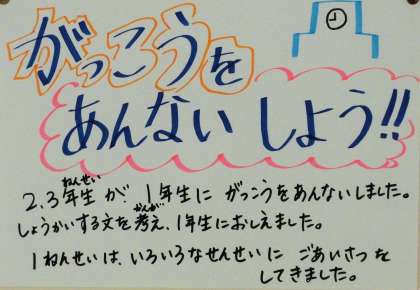 がっこうを
あんないしよう!!
2.3年生が、1年生に がっこうをあんないしました。
ねんせい
しょうかいする文を考え、1年生におしえました。
かんが
1ねんせいは、いろいろなせんせいに ごあいさつを
してきました。